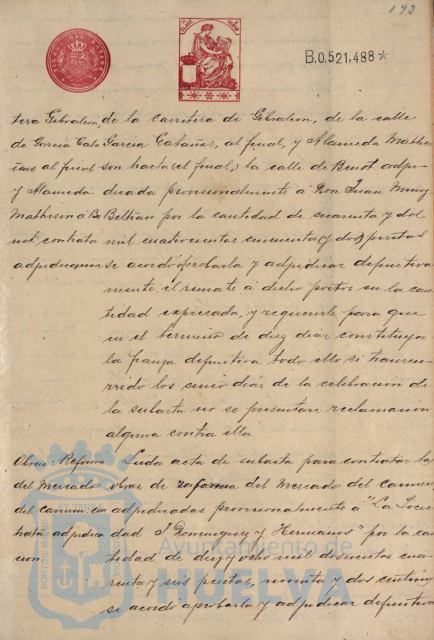 173
B.0.521.488*
tera Gibraleon, de la carretera de Gibraleon, de la calle
de Garcia Garcia Cabañas, al final, y Alameda Mathe-
al final son hasta (el final) la calle de Benot adju-
y Alameda dicada provisionalmente á Don Juan Muñoz
Matheson á Be Beltran por la cantidad de cuarenta y dos
not, contrata mil cuatrocientas cincuenta (y dos) pesetas
adjudicacion se acordó aprobarla y adjudicar definitiva
mente, el remate á dicho postor en la can
tidad expresada, y requerirle para que
en el termino de diez dias constituya
la fianza definitiva todo ello si transcu-
rrido los cinco dias de la celebracion de
la subasta no se presentase reclamacion
alguna contra ella
Obras: Reforma Leida acta de subasta para contratar las
del Mercado obras de reforma del Mercado del Carmen
del Carmen con adjudicadas provisionalmente á "La Socie
trata adjudica dad J Dominguez y Hermanos" por la can
cion. tidad de diez y ocho mil doscientas cua
renta y seis pesetas, noventa y dos centimos
se acordó aprobarla y adjudicar definitiva
Ayuntamiento de
HUELVA